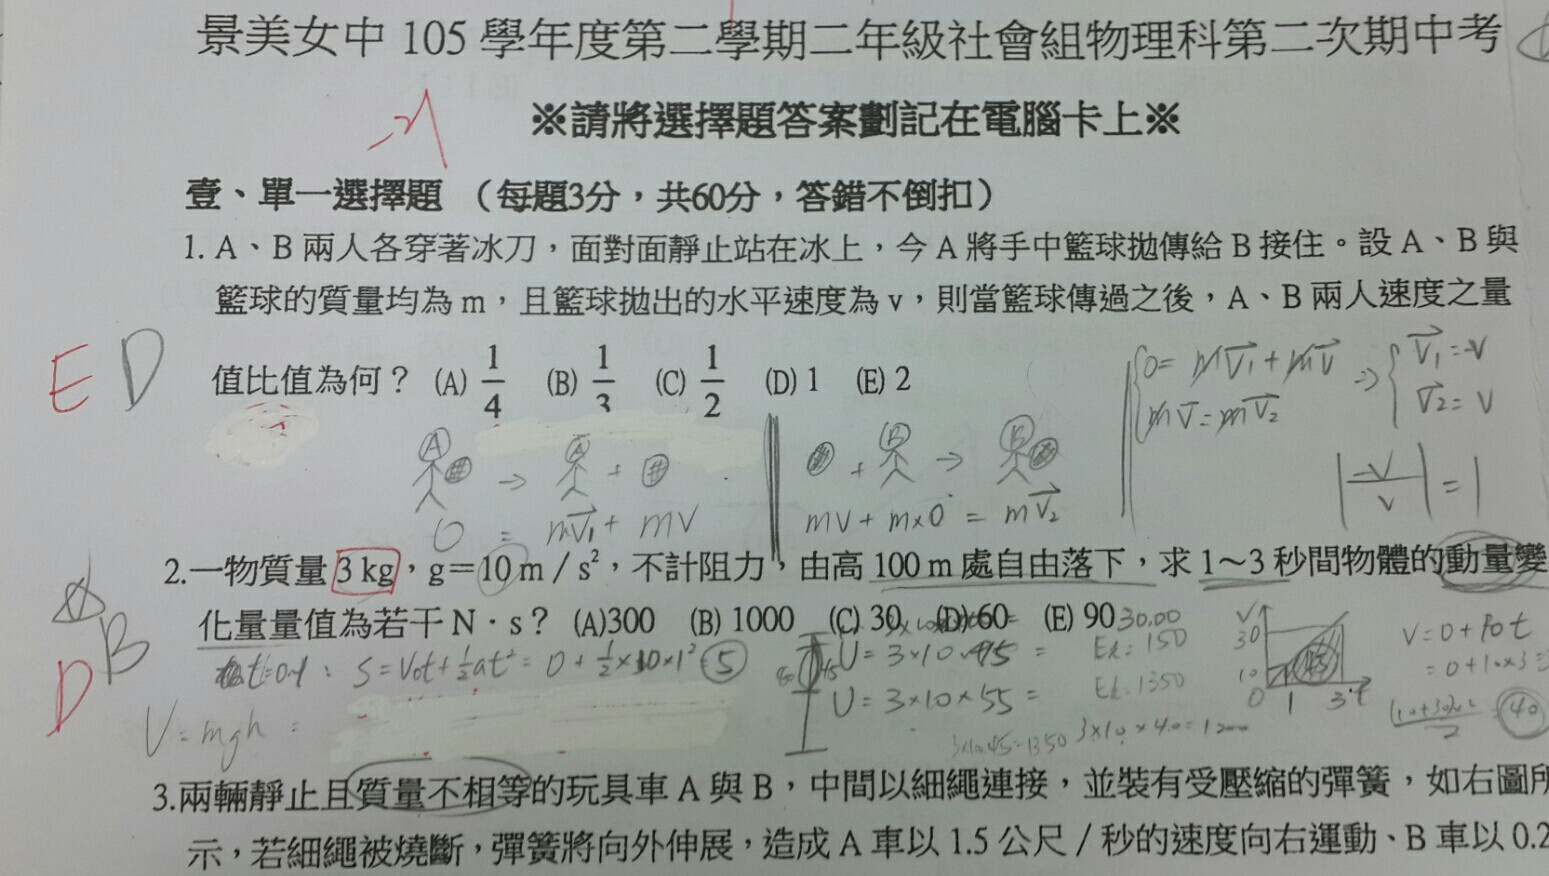 景美女中 105 學年度第二學期二年級社會組物理科第二次期中考
※請將選擇題答案劃記在電腦卡上※
壹、單一選擇題 （每題3分，共60分，答錯不倒扣）
1. A、B 兩人各穿著冰刀，面對面靜止站在冰上，今 A 將手中籃球拋傳給 B 接住。設 A、B 與
籃球的質量均為 m，且籃球拋出的水平速度為 v，則當籃球傳過之後，A、B 兩人速度之量
E D 值比值為何？ (A) 1/4 (B) 1/3 (C) 1/2 (D) 1 (E) 2
0 = mV₁ + mV ⇒ V₁ = -V
mV = mV₂ V₂ = V
A → A + B + → B
0 = mV₁ + mV mV + m×0 = mV₂ |-V/V| = 1
2.一物質量 3 kg，g＝10 m / s²，不計阻力，由高 100 m 處自由落下，求 1～3 秒間物體的動量變
化量量值為若干 N．s？ (A)300 (B) 1000 (C) 30 (D) 60 (E) 90
B
D
t=0-1： S = V₀t + ½at² = 0 + ½×10×1² = 5
U = 3×10×95 = Ek = 150
U = 3×10×55 = Ek = 1350
V = mgh =
3×10×45=1350 3×10×40=1200
V 30 10 0 1 3 t
V = 0 + 10t
= 0 + 10×3
40
3.兩輛靜止且質量不相等的玩具車 A 與 B，中間以細繩連接，並裝有受壓縮的彈簧，如右圖所
示，若細繩被燒斷，彈簧將向外伸展，造成 A 車以 1.5 公尺 / 秒的速度向右運動、B 車以 0.2